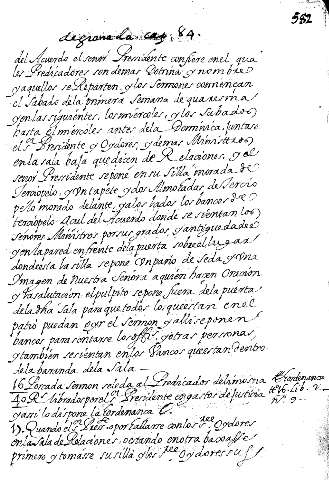 582
de granada cap. 84.
del Acuerdo el señor Presidente confiere en el qual
los Predicadores son de mas Dotrina y nombre
y aquellos se Reparten, y los Sermones comiençan
el Sabado de la primera Semana de quaresma
y en las siguientes, los miercoles, y los Sabados
hasta el miercoles antes de la Dominica, juntase
el Presidente y Oydores, y demas Ministros
en la sala baja que dicen de Relaciones, y el
señor Presidente se pone en su Silla morada de
terciopelo, y un tapete y dos Almohadas de tercio
pelo morado delante, y a los lados los bancos de
terciopelo Azul del Acuerdo donde se sientan los
Señores Ministros por sus grados y antiguedades
y en la pared en frente de la puerta sobre el lugar
donde esta la silla se pone Un paño de Seda, y Una
Imagen de Nuestra Señora a quien hacen Oracion
y la salutacion, el pulpito se pone fuera de la puerta
de la dha Sala para que todos los que estan en el
patio puedan oyr el Sermon y alli se ponen
bancos para sentarse los offes. y otras personas,
y tambien se sientan en los Vancos que estan dentro
de la baranda de la Sala
16 Por cada Sermon se le da al Predicador de limosna
40 Rs. librados por el Presidente en gastos de Justicia
y assi lo dispone la Hordenanca
Hordenança
17. Quando el Presidente por hallarse con los Oydores
en la Sala de Relaciones, estando en otra baxasse
primero y tomare su silla, y los Oydores sus